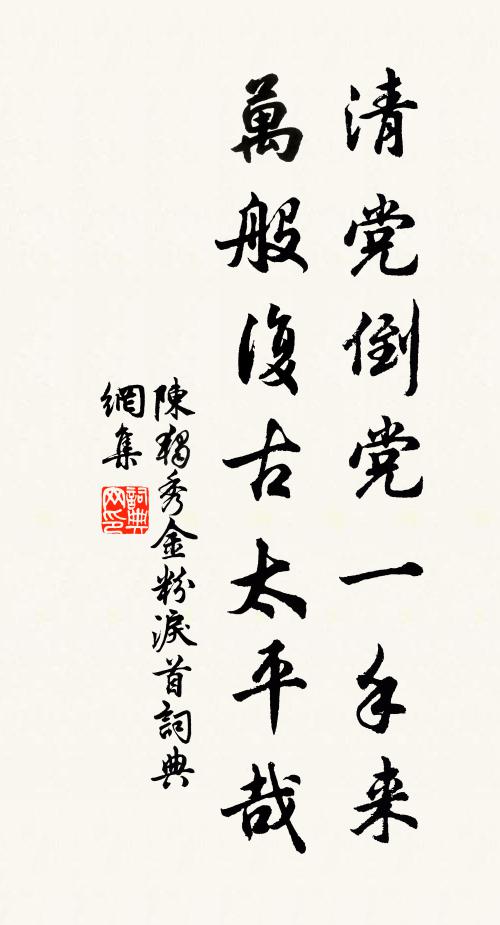 清党倒党一手来
萬般復古太平哉
陳獨秀金粉淚首詞典
網集
詞典
网印